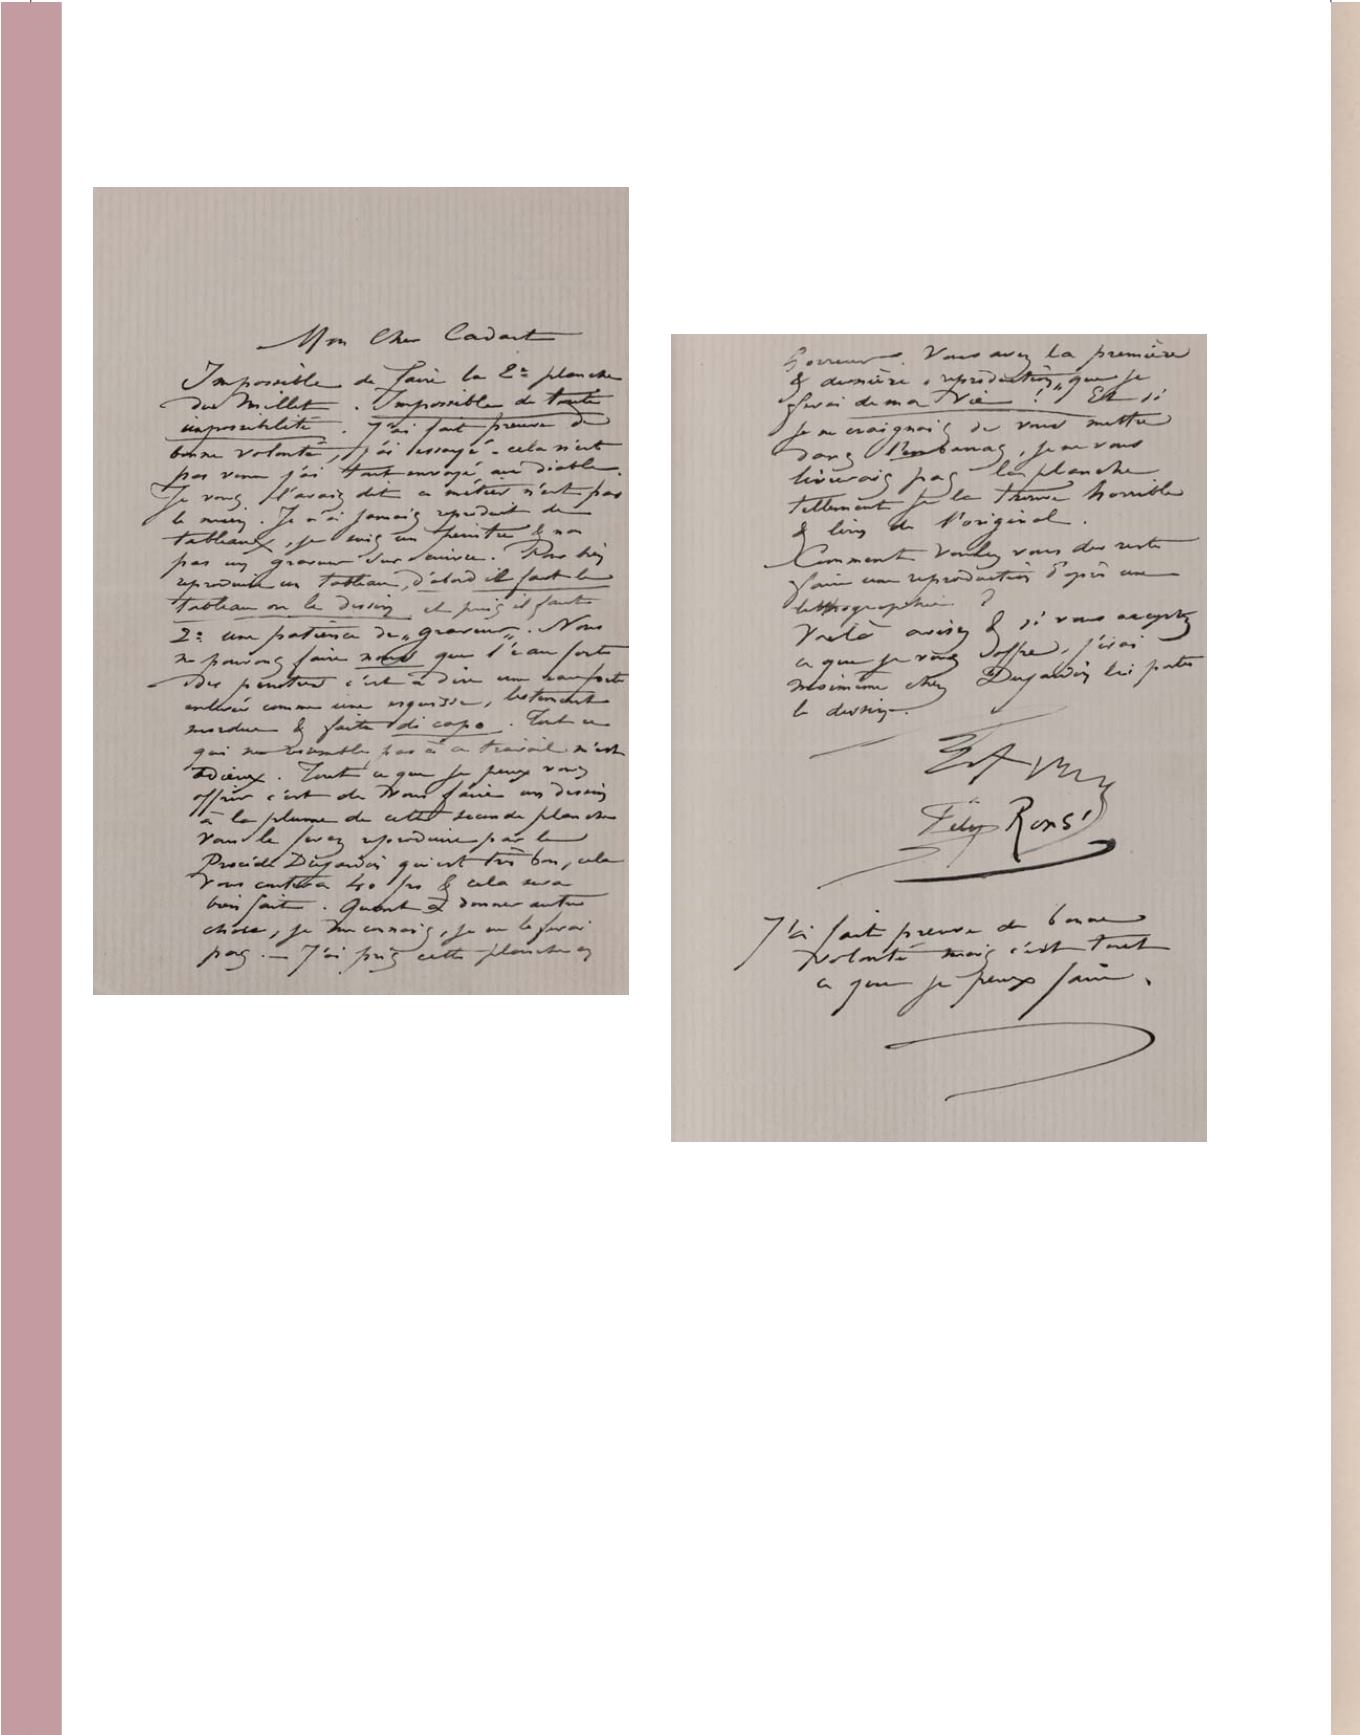 Mon Cher Cadart
Impossible de faire la 2e planche
du Millet. Impossible de toute
impossibilité. J'ai fait preuve de
bonne volonté, j'ai essayé - cela n'est
pas venu j'ai tout envoyé au diable.
Je vous l'avais dit ce métier n'est pas
le mien. Je n'ai jamais reproduit de
tableaux, je suis un peintre & non
pas un graveur sur cuivre. Pour bien
reproduire un tableau, d'abord il faut le
tableau ou le dessin et puis il faut
2e une patience de „graveur„. Nous
ne pouvons faire nous que l'eau forte
des peintres c'est à dire une eau forte
enlevée comme une esquisse, lestement
mordue & faite di capo. Tout ce
qui ne ressemble pas à ce travail m'est
odieux. Tout ce que je peux vous
offrir c'est de vous faire un dessin
à la plume de cette seconde planche
vous le ferez reproduire par le
Procédé Dujardin qui est très bon, cela
vous coutera 40 frs & cela sera
bien fait. Quant à donner autre
chose, je me connais, je ne le ferai
pas. — J'ai pris cette planche en
horreur. Vous avez la première
& dernière „reproduction„ que je
ferai de ma Vie ! Et si
je ne craignais de vous mettre
dans l'embarras, je ne vous
livrerais pas la planche
tellement je la trouve horrible
& loin de l'original.
Comment voulez vous du reste
faire une reproduction d'après une
lithographie ?
Voilà avisez & si vous acceptez
ce que je vous offre, j'irai
moi même chez Dujardin lui porter
le dessin.
Fély Rops
J'ai fait preuve de bonne
volonté mais c'est tout
ce que je peux faire.